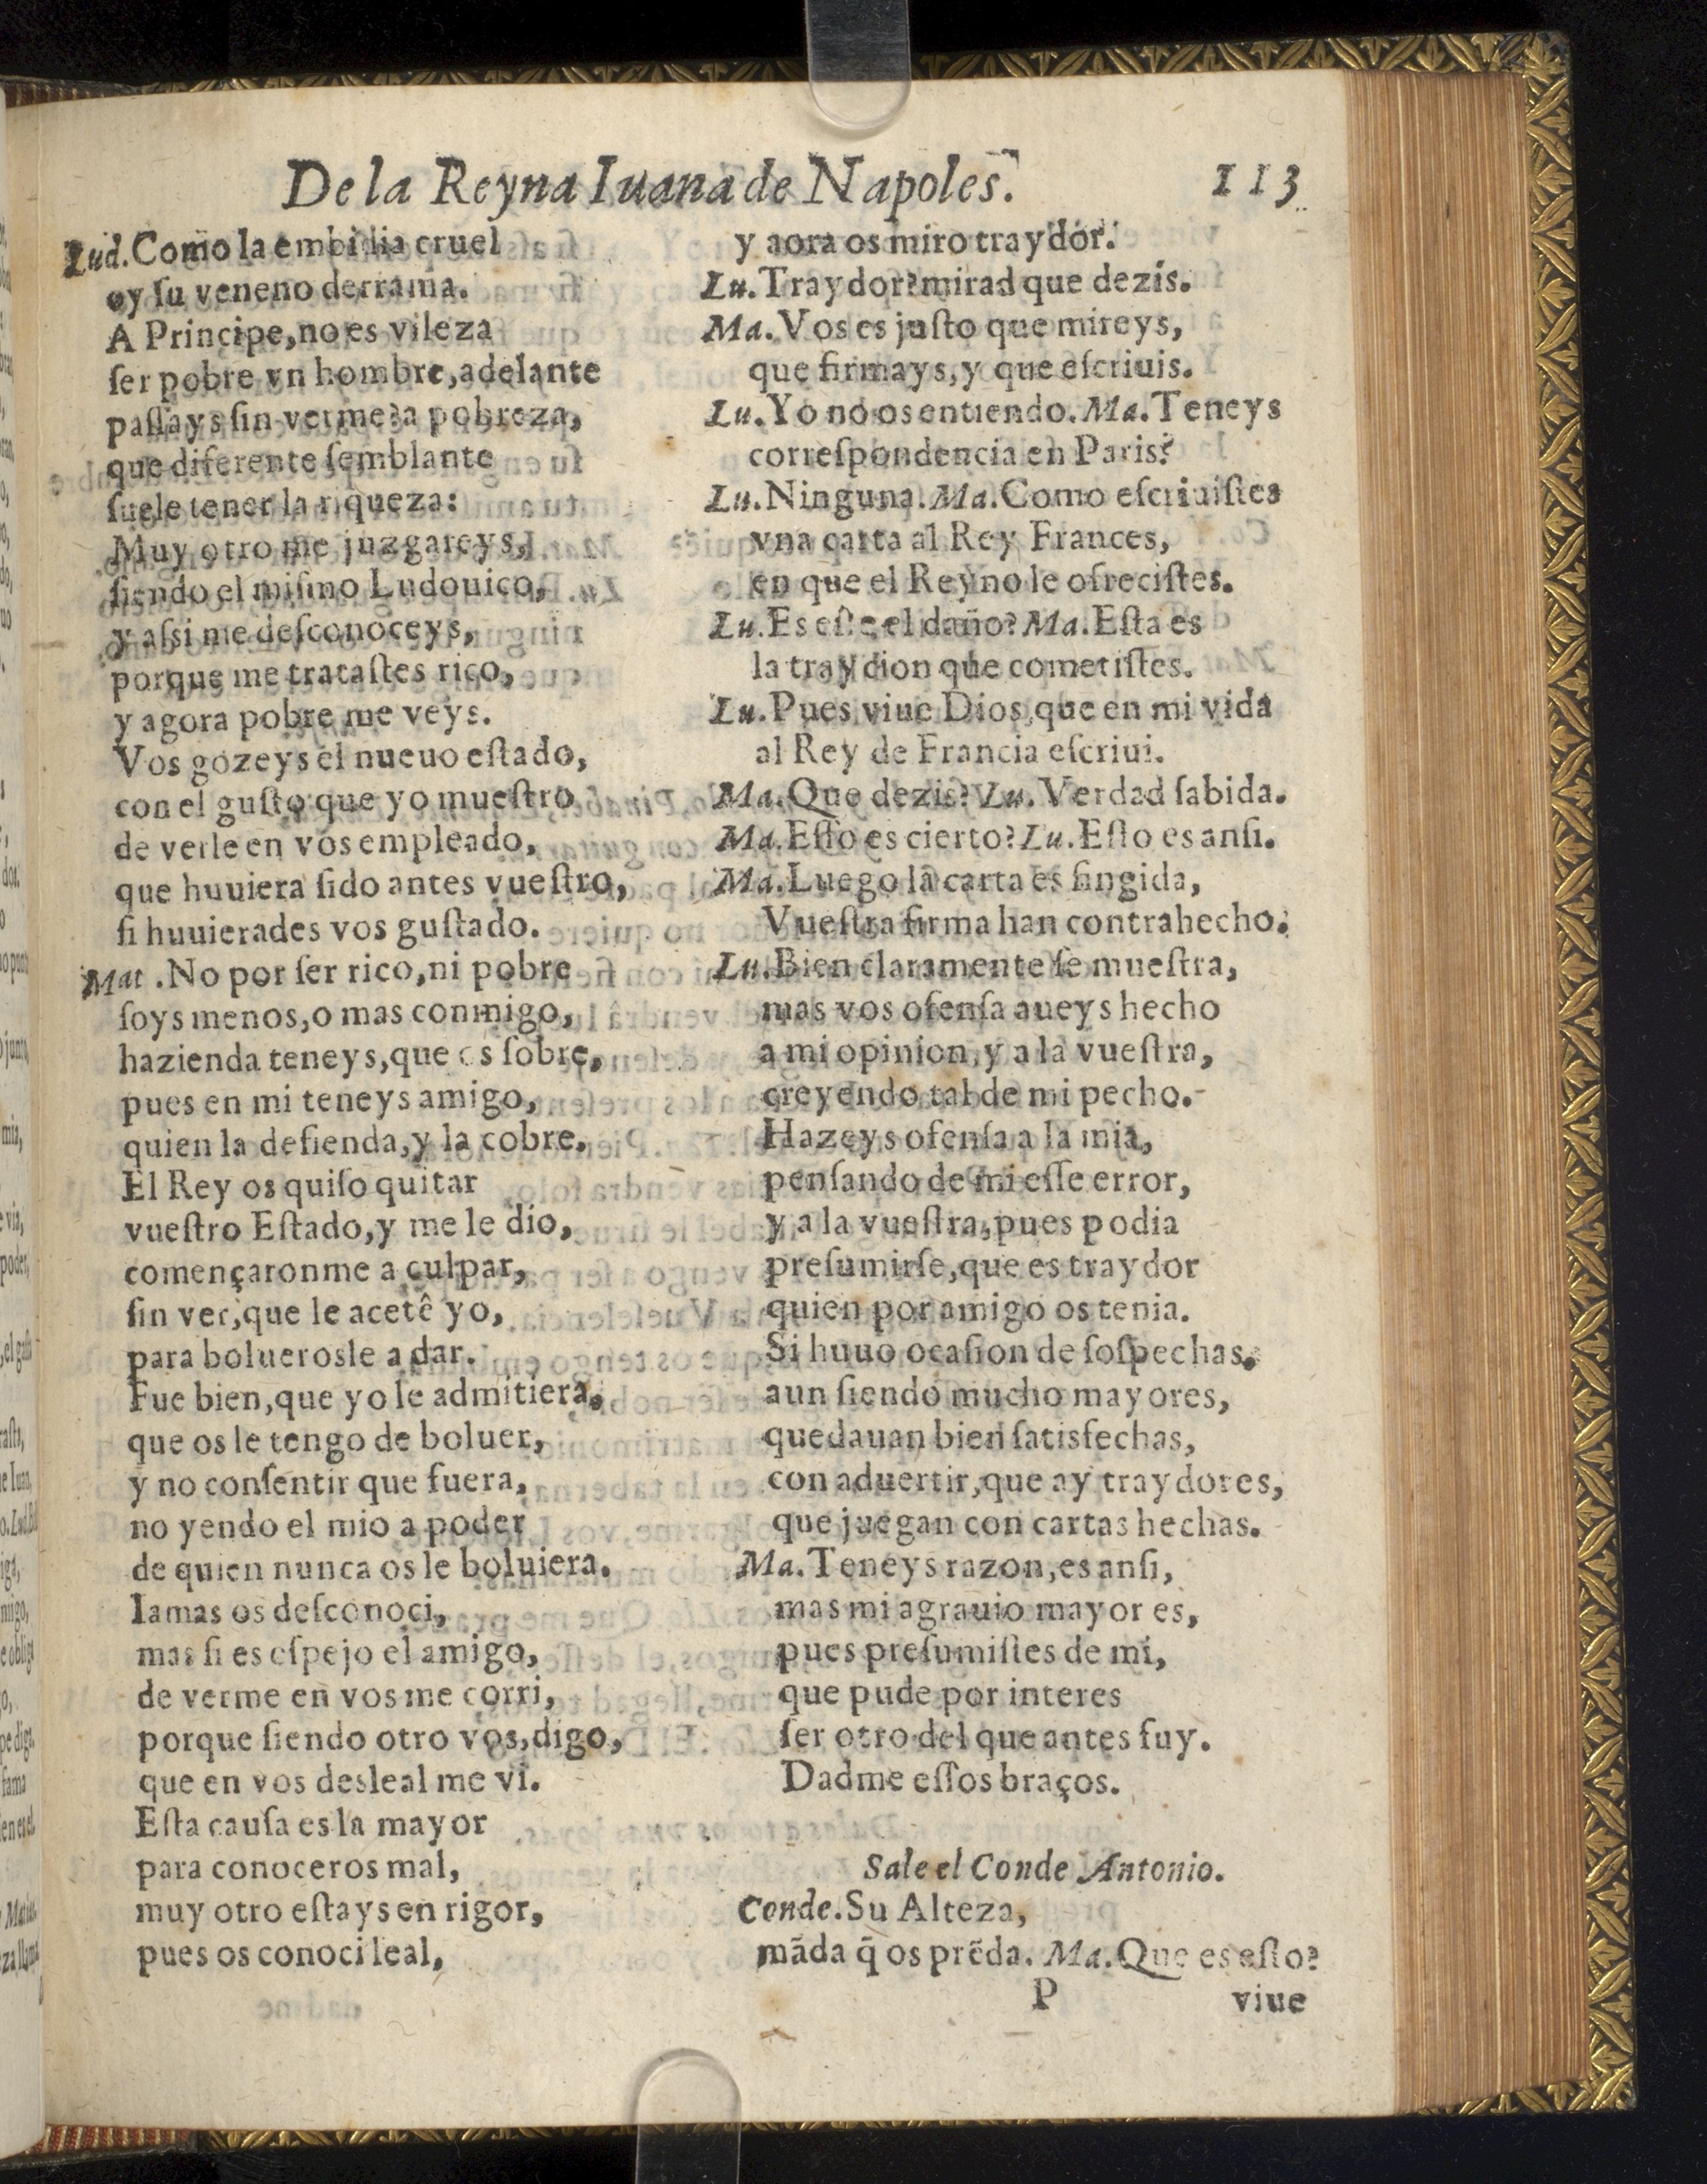 De la Reyna Iuana de Napoles.
113
Lud. Como la embidia cruel
oy ſu veneno derrama.
A Principe, no es vileza
ſer pobre vn hombre, adelante
paſſays ſin verme? a pobreza,
que diferente ſemblante
ſuele tener la riqueza:
Muy otro me juzgareys,
ſiendo el miſmo Ludouico,
y aſsi me deſconoceys,
porque me trataſtes rico,
y agora pobre me veys.
Vos gozeys el nueuo eſtado,
con el guſto que yo mueſtro
de verle en vos empleado,
que huuiera ſido antes vueſtro,
ſi huuierades vos guſtado.
Mat. No por ſer rico, ni pobre
ſoys menos, o mas conmigo,
hazienda teneys, que os ſobre,
pues en mi teneys amigo,
quien la defienda, y la cobre.
El Rey os quiſo quitar
vueſtro Eſtado, y me le dio,
començaronme a culpar,
ſin ver, que le acetê yo,
para boluerosle a dar.
Fue bien, que yo le admitiera,
que os le tengo de boluer,
y no conſentir que fuera,
no yendo el mio a poder
de quien nunca os le boluiera.
Iamas os deſconoci,
mas ſi es eſpejo el amigo,
de verme en vos me corri,
porque ſiendo otro vos, digo,
que en vos desleal me vi.
Eſta cauſa es la mayor
para conoceros mal,
muy otro eſtays en rigor,
pues os conoci leal,
y aora os miro traydor.
Lu. Traydor? mirad que dezis.
Ma. Vos es juſto que mireys,
que firmays, y que eſcriuis.
Lu. Yo no os entiendo. Ma. Teneys
correſpondencia en Paris?
Lu. Ninguna. Ma. Como eſcriuiſtes
vna carta al Rey Frances,
en que el Reyno le ofreciſtes.
Lu. Es eſte el daño? Ma. Eſta es
la traydion que cometiſtes.
Lu. Pues viue Dios, que en mi vida
al Rey de Francia eſcriui.
Ma. Que dezis? Lu. Verdad ſabida.
Ma. Eſſo es cierto? Lu. Eſto es anſi.
Ma. Luego la carta es fingida,
Vueſtra firma han contrahecho.
Lu. Bien claramente ſe mueſtra,
mas vos ofenſa aueys hecho
a mi opinion, y a la vueſtra,
creyendo tal de mi pecho.
Hazeys ofenſa a la mia,
penſando de mi eſſe error,
y a la vueſtra, pues podia
preſumirſe, que es traydor
quien por amigo os tenia.
Si huuo ocaſion de ſoſpechas,
aun ſiendo mucho mayores,
quedauan bien ſatisfechas,
con aduertir, que ay traydores,
que juegan con cartas hechas.
Ma. Teneys razon, es anſi,
mas mi agrauio mayor es,
pues preſumiſtes de mi,
que pude por interes
ſer otro del que antes fuy.
Dadme eſſos braços.
Sale el Conde Antonio.
Conde. Su Alteza,
mãda q̃ os prẽda. Ma. Que es eſto?
P
viue